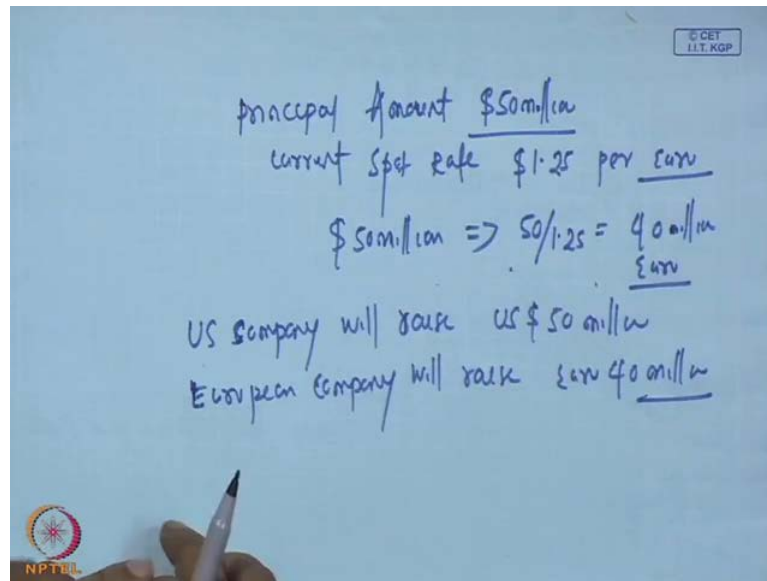 © CET
I.I.T. KGP
principal Amount $50million
current Spot Rate $1.25 per Euro
$50million => 50/1.25 = 40 million
Euro
US Company will raise US $50 million
European Company will raise Euro 40 million
NPTEL